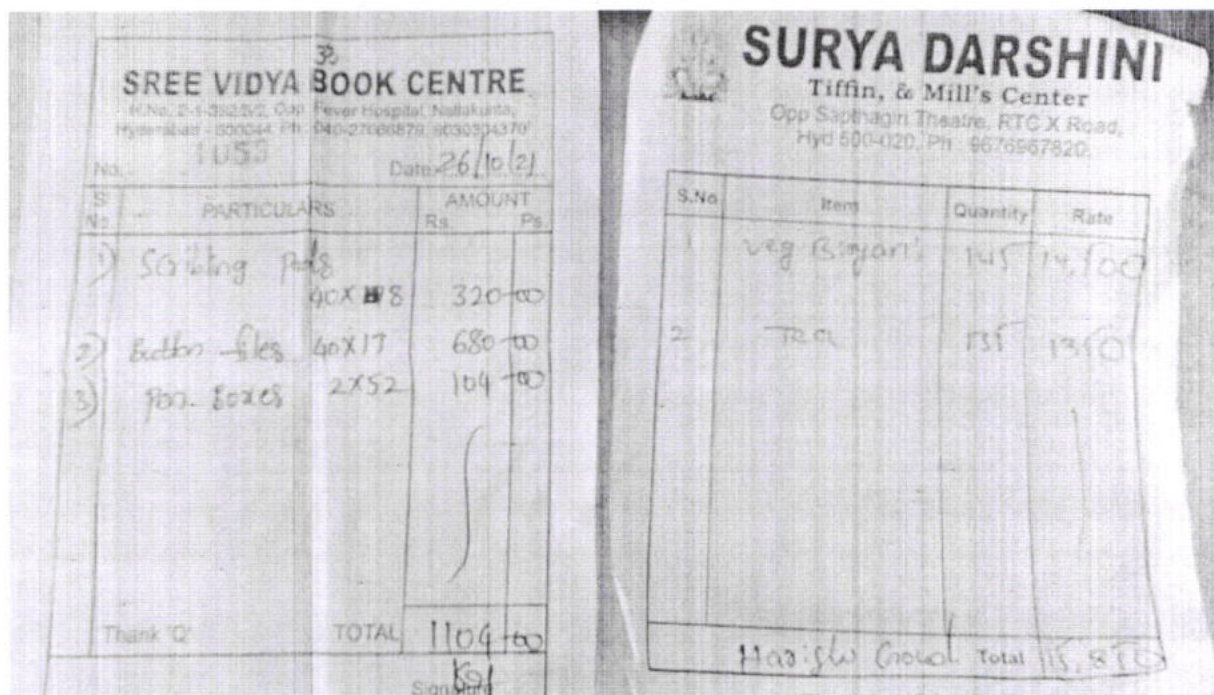 ॐ
SREE VIDYA BOOK CENTRE
H.No. 2-1-392/5/2, Opp Fever Hospital, Nallakunta,
Hyderabad - 500044. Ph : 040-27666879, 9030304370
No. 1053 Date: 26/10/21
S No PARTICULARS AMOUNT Rs. Ps.
1) Scribling pads
40 X 8 320-00
2) Button files 40X17 680-00
3) Boxes 2X52 104-00
Thank 'Q' TOTAL 1104-00
Signature
SURYA DARSHINI
Tiffin, & Mill's Center
Opp Sapthagiri Theatre, RTC X Road,
Hyd 500-020, Ph : 9676967820
S.No Item Quantity Rate
1 Veg Biryani 145 14,500
2 Tea 135 1350
Harish Goud Total 15,850